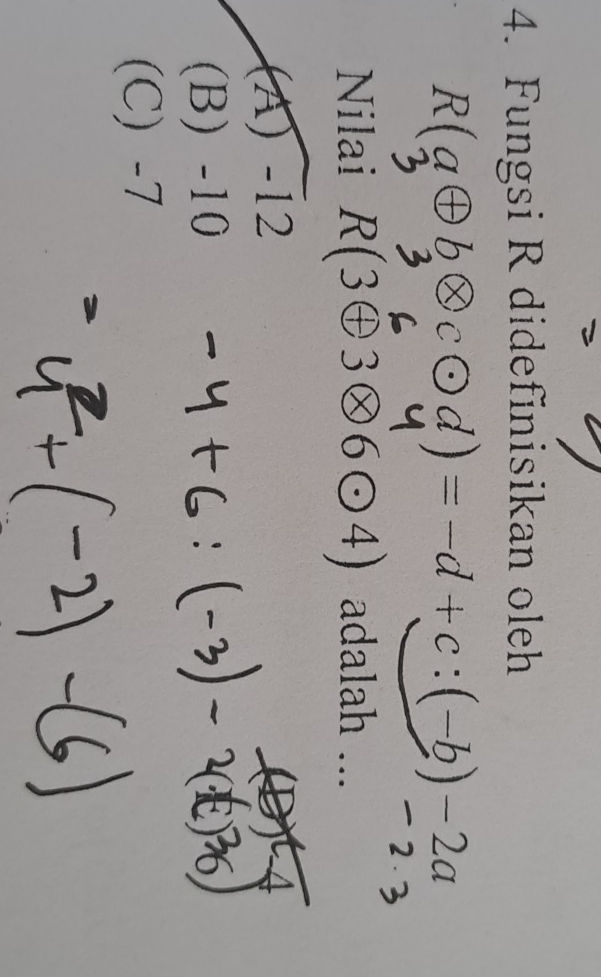 4. Fungsi R didefinisikan oleh
R(a⊕b⊗c⊙d) = -d + c : (-b) - 2a
3 3 6 4 -2.3
Nilai R(3⊕3⊗6⊙4) adalah ...
(A) -12 (D) -4
(B) -10
(C) -7
-4 + 6 : (-3) -
+ (-2) - (6)